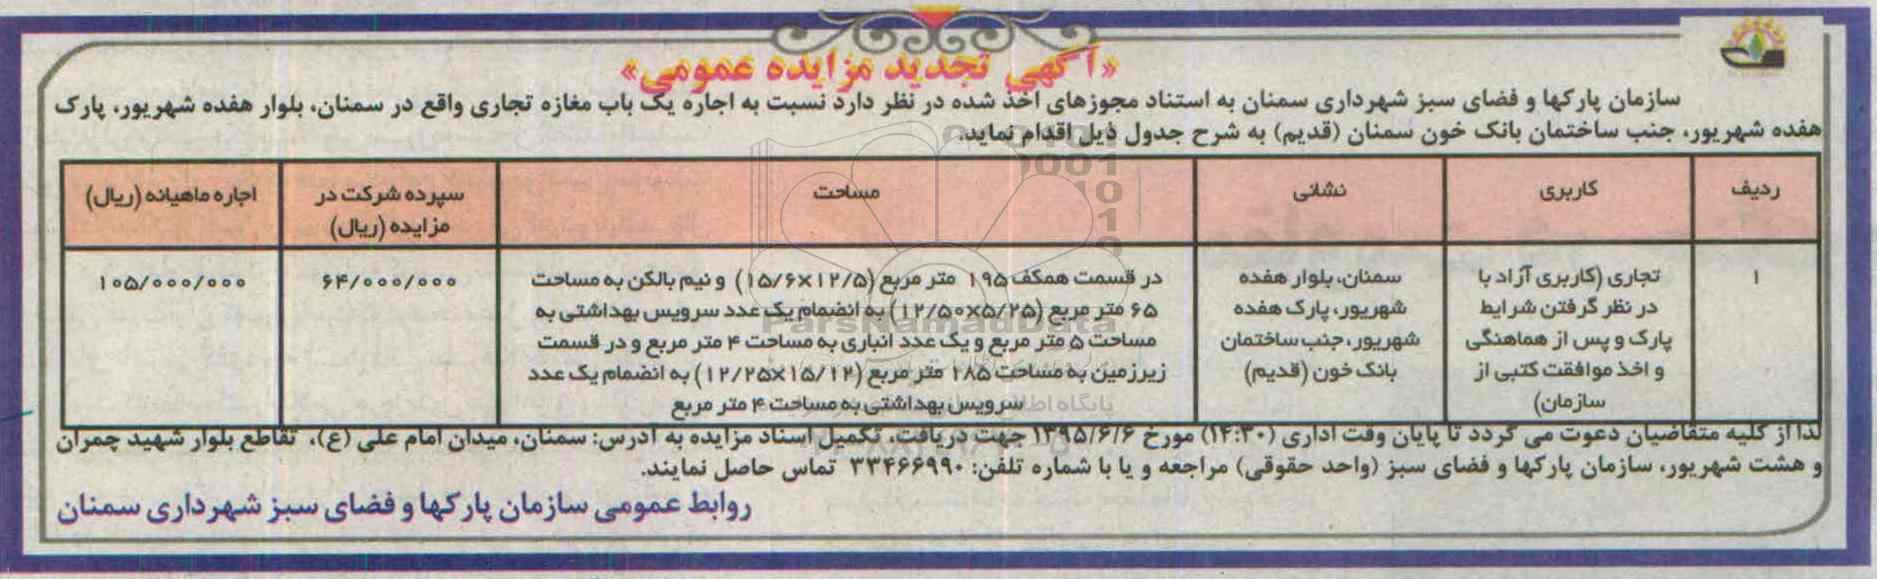 «آگهی تجدید مزایده عمومی»
سازمان پارکها و فضای سبز شهرداری سمنان به استناد مجوزهای اخذ شده در نظر دارد نسبت به اجاره یک باب مغازه تجاری واقع در سمنان، بلوار هفده شهریور، پارک
هفده شهریور، جنب ساختمان بانک خون سمنان (قدیم) به شرح جدول ذیل اقدام نماید.
ردیف
کاربری
نشانی
مساحت
سپرده شرکت در
مزایده (ریال)
اجاره ماهیانه (ریال)
۱
تجاری (کاربری آزاد با
در نظر گرفتن شرایط
پارک و پس از هماهنگی
و اخذ موافقت کتبی از
سازمان)
سمنان، بلوار هفده
شهریور، پارک هفده
شهریور، جنب ساختمان
بانک خون (قدیم)
در قسمت همکف ۱۹۵ متر مربع (۱۲/۵×۱۵/۶) و نیم بالکن به مساحت
۶۵ متر مربع (۵/۲۵×۱۲/۵۰) به انضمام یک عدد سرویس بهداشتی به
مساحت ۵ متر مربع و یک عدد انباری به مساحت ۴ متر مربع و در قسمت
زیرزمین به مساحت ۱۸۵ متر مربع (۱۵/۱۲×۱۲/۲۵) به انضمام یک عدد
سرویس بهداشتی به مساحت ۴ متر مربع
۶۴/۰۰۰/۰۰۰
۱۰۵/۰۰۰/۰۰۰
لذا از کلیه متقاضیان دعوت می گردد تا پایان وقت اداری (۱۴:۳۰) مورخ ۱۳۹۵/۶/۶ جهت دریافت، تکمیل اسناد مزایده به آدرس: سمنان، میدان امام علی (ع)، تقاطع بلوار شهید چمران
و هشت شهریور، سازمان پارکها و فضای سبز (واحد حقوقی) مراجعه و یا با شماره تلفن: ۳۳۴۶۶۹۹۰ تماس حاصل نمایند.
روابط عمومی سازمان پارکها و فضای سبز شهرداری سمنان
ParsNamadData